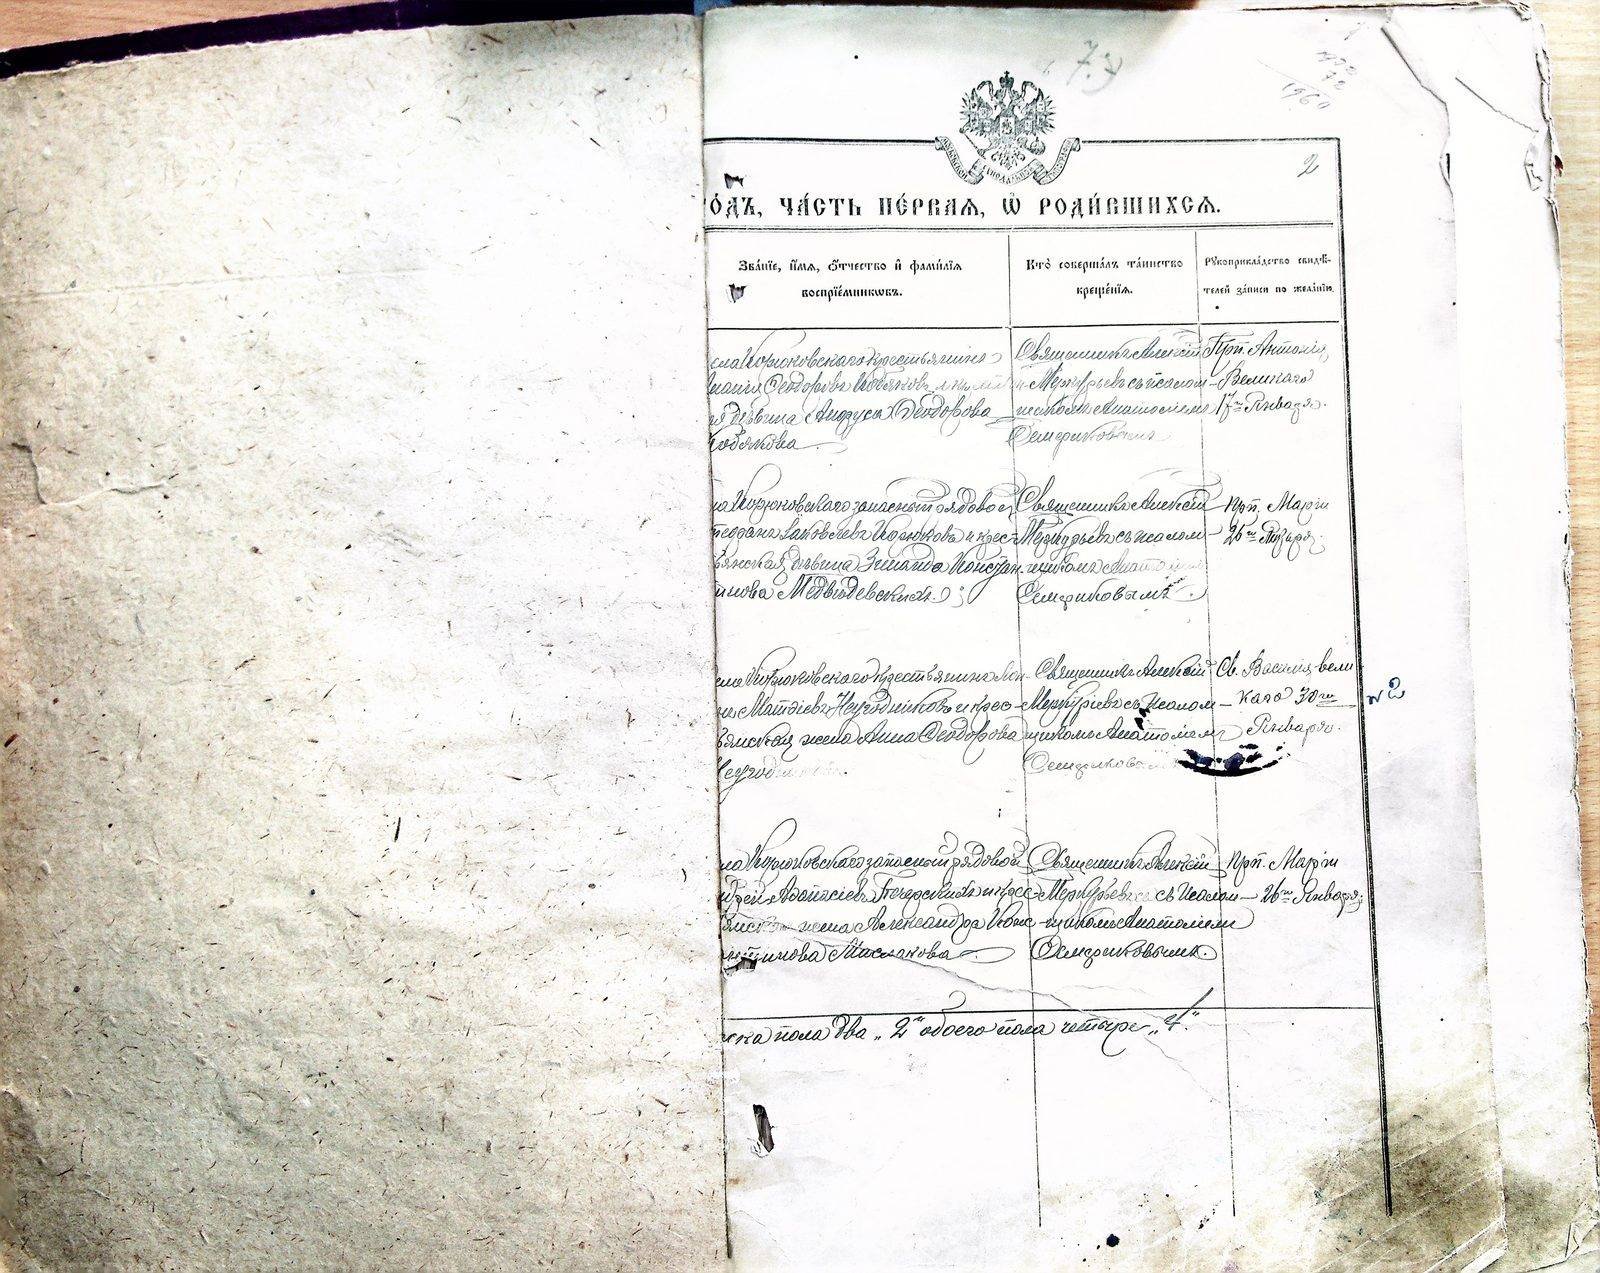 2
О́ДЪ, ЧА́СТЬ ПЕ́РВАѦ, Ѡ҆ РОДИ́ВШИХСѦ.
Зва́нїе, и҆́мѧ, ѻ҆́тчество и҆ фами́лїѧ
воспрїе́мникѡвъ.
Кто̀ соверша́лъ та́инство
креще́нїѧ.
Рꙋкоприкла́дство свидѣ́-
телей за́писи по жела́нїю.
села Корюковскаго крестьянинъ
Ѳеодоровъ Кобяковъ
дѣвица Ѳеодорова
Кобякова
Священникъ Алексій
Меркурьевъ съ псалом-
щикомъ Анатоліемъ
Семъ
Прп. Антонія
Великаго
17го Января.
Корюковскаго запасный рядовой
Яковлевъ Корюковъ и крест-
ьянская дѣвица Зинаида Констан-
тинова Медвѣдевскихъ
Священникъ Алексій
Меркурьевъ съ псалом-
щикомъ
Прп. Маріи
26го Января.
села Корюковскаго крестьянинъ
Матѳіевъ Неугодниковъ и крес-
тьянская жена Анна Ѳеодорова
Неугод
Священникъ Алексій
Меркуріевъ съ псалом-
щикомъ Анатоліемъ
Св. Василія Вели-
каго 30го
Января.
№ 2
Корюковскаго запасный рядовой
Аѳанасіевъ Печерскихъ и крес-
тьянская жена Александра Конс-
тантинова
Священникъ Алексій
Меркурьевъ съ псалом-
щикомъ Анатоліемъ
Прп. Маріи
26го Января
женска пола два „2" обоего пола четыре „4."